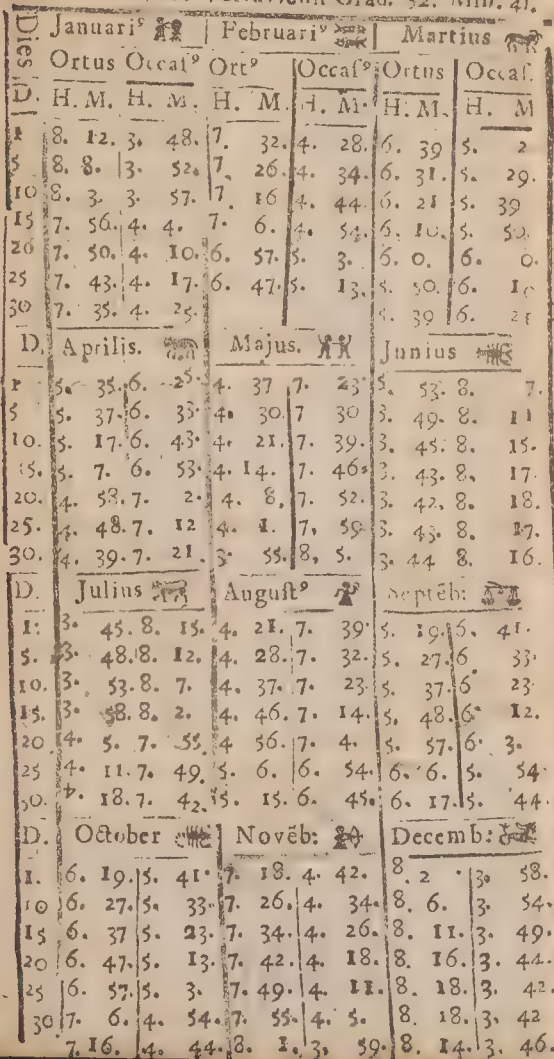 Grad. 52. Min. 41.
Dies Januariꝰ Februariꝰ Martius
Ortus Occaſꝰ Ortꝰ Occaſꝰ Ortus Occaſ.
D. H. M. H. M. H. M. H. M. H. M. H. M
1 8. 12. 3. 48. 7. 32. 4. 28. 6. 39 5. 2
5 8. 8. 3. 52. 7. 26. 4. 34. 6. 31. 5. 29.
10 8. 3. 3. 57. 7. 16 4. 44. 6. 21 5. 39
15 7. 56. 4. 4. 7. 6. 4. 54. 6. 10. 5. 50.
20 7. 50. 4. 10. 6. 57. 5. 3. 6. 0. 6. 0.
25 7. 43. 4. 17. 6. 47. 5. 13. 5. 50. 6. 10
30 7. 35. 4. 25. 5. 39 6. 21
D. Aprilis. Majus. Junius
1 5. 35. 6. 25. 4. 37 7. 23 5. 53. 8. 7.
5 5. 37. 6. 33. 4. 30. 7 30 3. 49. 8. 11
10. 5. 17. 6. 43. 4. 21. 7. 39. 3. 45. 8. 15.
15. 5. 7. 6. 53. 4. 14. 7. 46. 3. 43. 8. 17.
20. 4. 58. 7. 2. 4. 8. 7. 52. 3. 42. 8. 18.
25. 4. 48. 7. 12 4. 1. 7. 59 3. 43. 8. 17.
30. 4. 39. 7. 21. 3. 55. 8. 5. 3. 44 8. 16.
D. Julius Auguſtꝰ Septēb:
1: 3. 45. 8. 15. 4. 21. 7. 39. 5. 19. 6. 41.
5. 3. 48. 8. 12. 4. 28. 7. 32. 5. 27. 6 33.
10. 3. 53. 8. 7. 4. 37. 7. 23. 5. 37. 6 23
15. 3. 58. 8. 2. 4. 46. 7. 14. 5. 48. 6. 12.
20 4. 5. 7. 55. 4 56. 7. 4. 5. 57. 6. 3.
25 4. 11. 7. 49. 5. 6. 6. 54. 6. 6. 5. 54
30. 4. 18. 7. 42. 5. 15. 6. 45. 6. 17. 5. 44.
D. October Novēb: Decemb:
1. 6. 19. 5. 41. 7. 18. 4. 42. 8. 2 3. 58.
10 6. 27. 5. 33. 7. 26. 4. 34. 8. 6. 3. 54.
15 6. 37 5. 23. 7. 34. 4. 26. 8. 11. 3. 49.
20 6. 47. 5. 13. 7. 42. 4. 18. 8. 16. 3. 44.
25 6. 57. 5. 3. 7. 49. 4. 11. 8. 18. 3. 42.
30 7. 6. 4. 54. 7. 55. 4. 5. 8. 18. 3. 42
7. 16. 4. 44. 8. 1. 3. 59. 8. 14. 3. 46